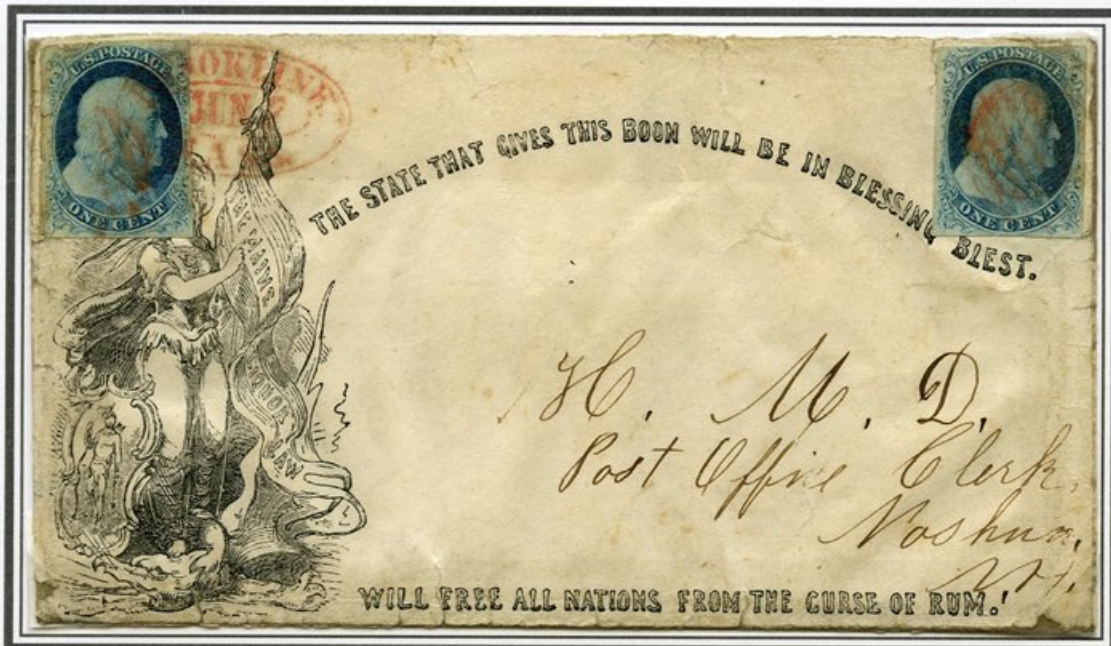 U.S. POSTAGE
ONE CENT
OOKLINE
JUN
U.S. POSTAGE
ONE CENT
THE STATE THAT GIVES THIS BOON WILL BE IN BLESSING BLEST.
LIQUOR LAW
H. M. D.
Post Office Clerk,
Nashua,
N.H.
WILL FREE ALL NATIONS FROM THE CURSE OF RUM.!